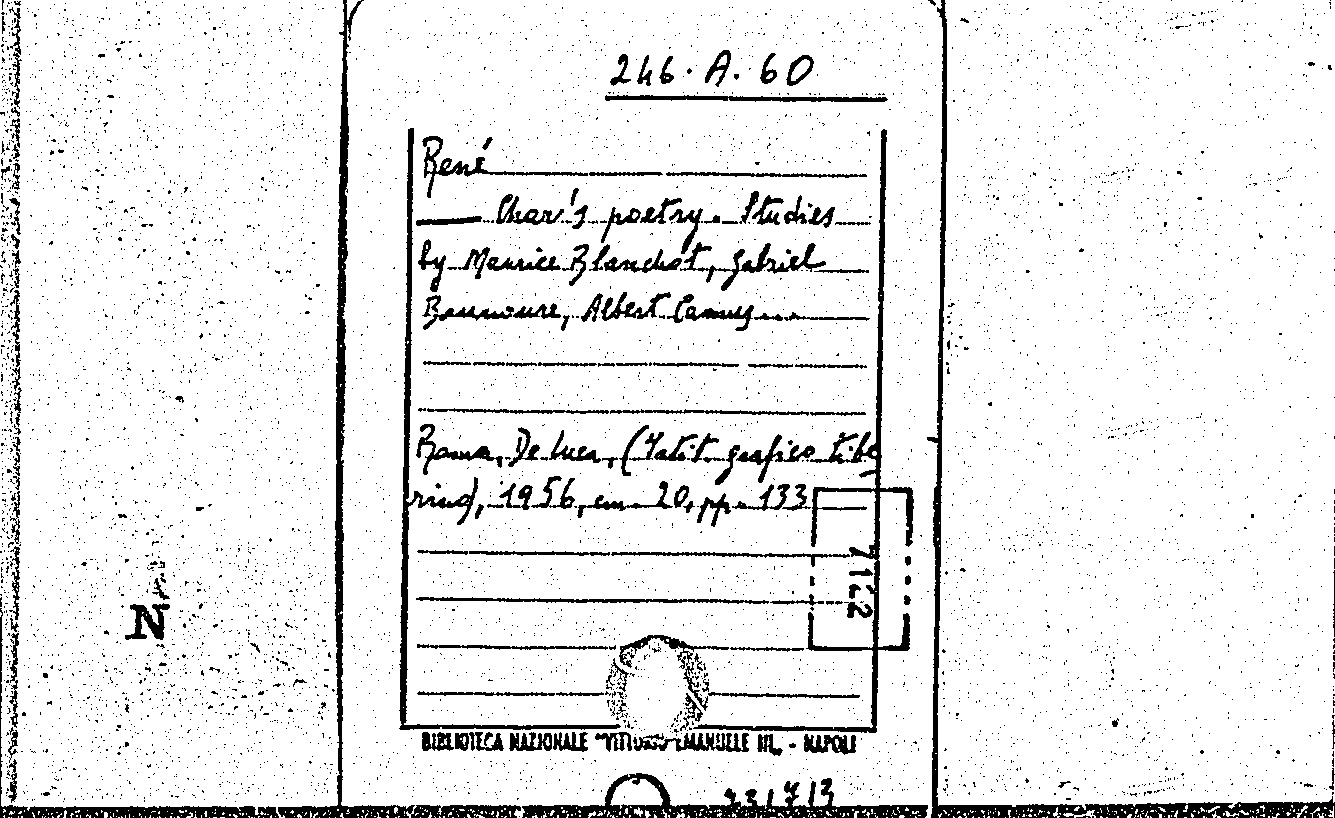 246.A.60
René
Char's poetry. Studies
by Maurice Blanchot, Gabriel
Bounoure, Albert Camus...
Roma, De Luca, (Istit. grafico tibe
rino), 1956, cm. 20, pp. 133
7122
N
BIBLIOTECA NAZIONALE "VITTORIO EMANUELE III" - NAPOLI